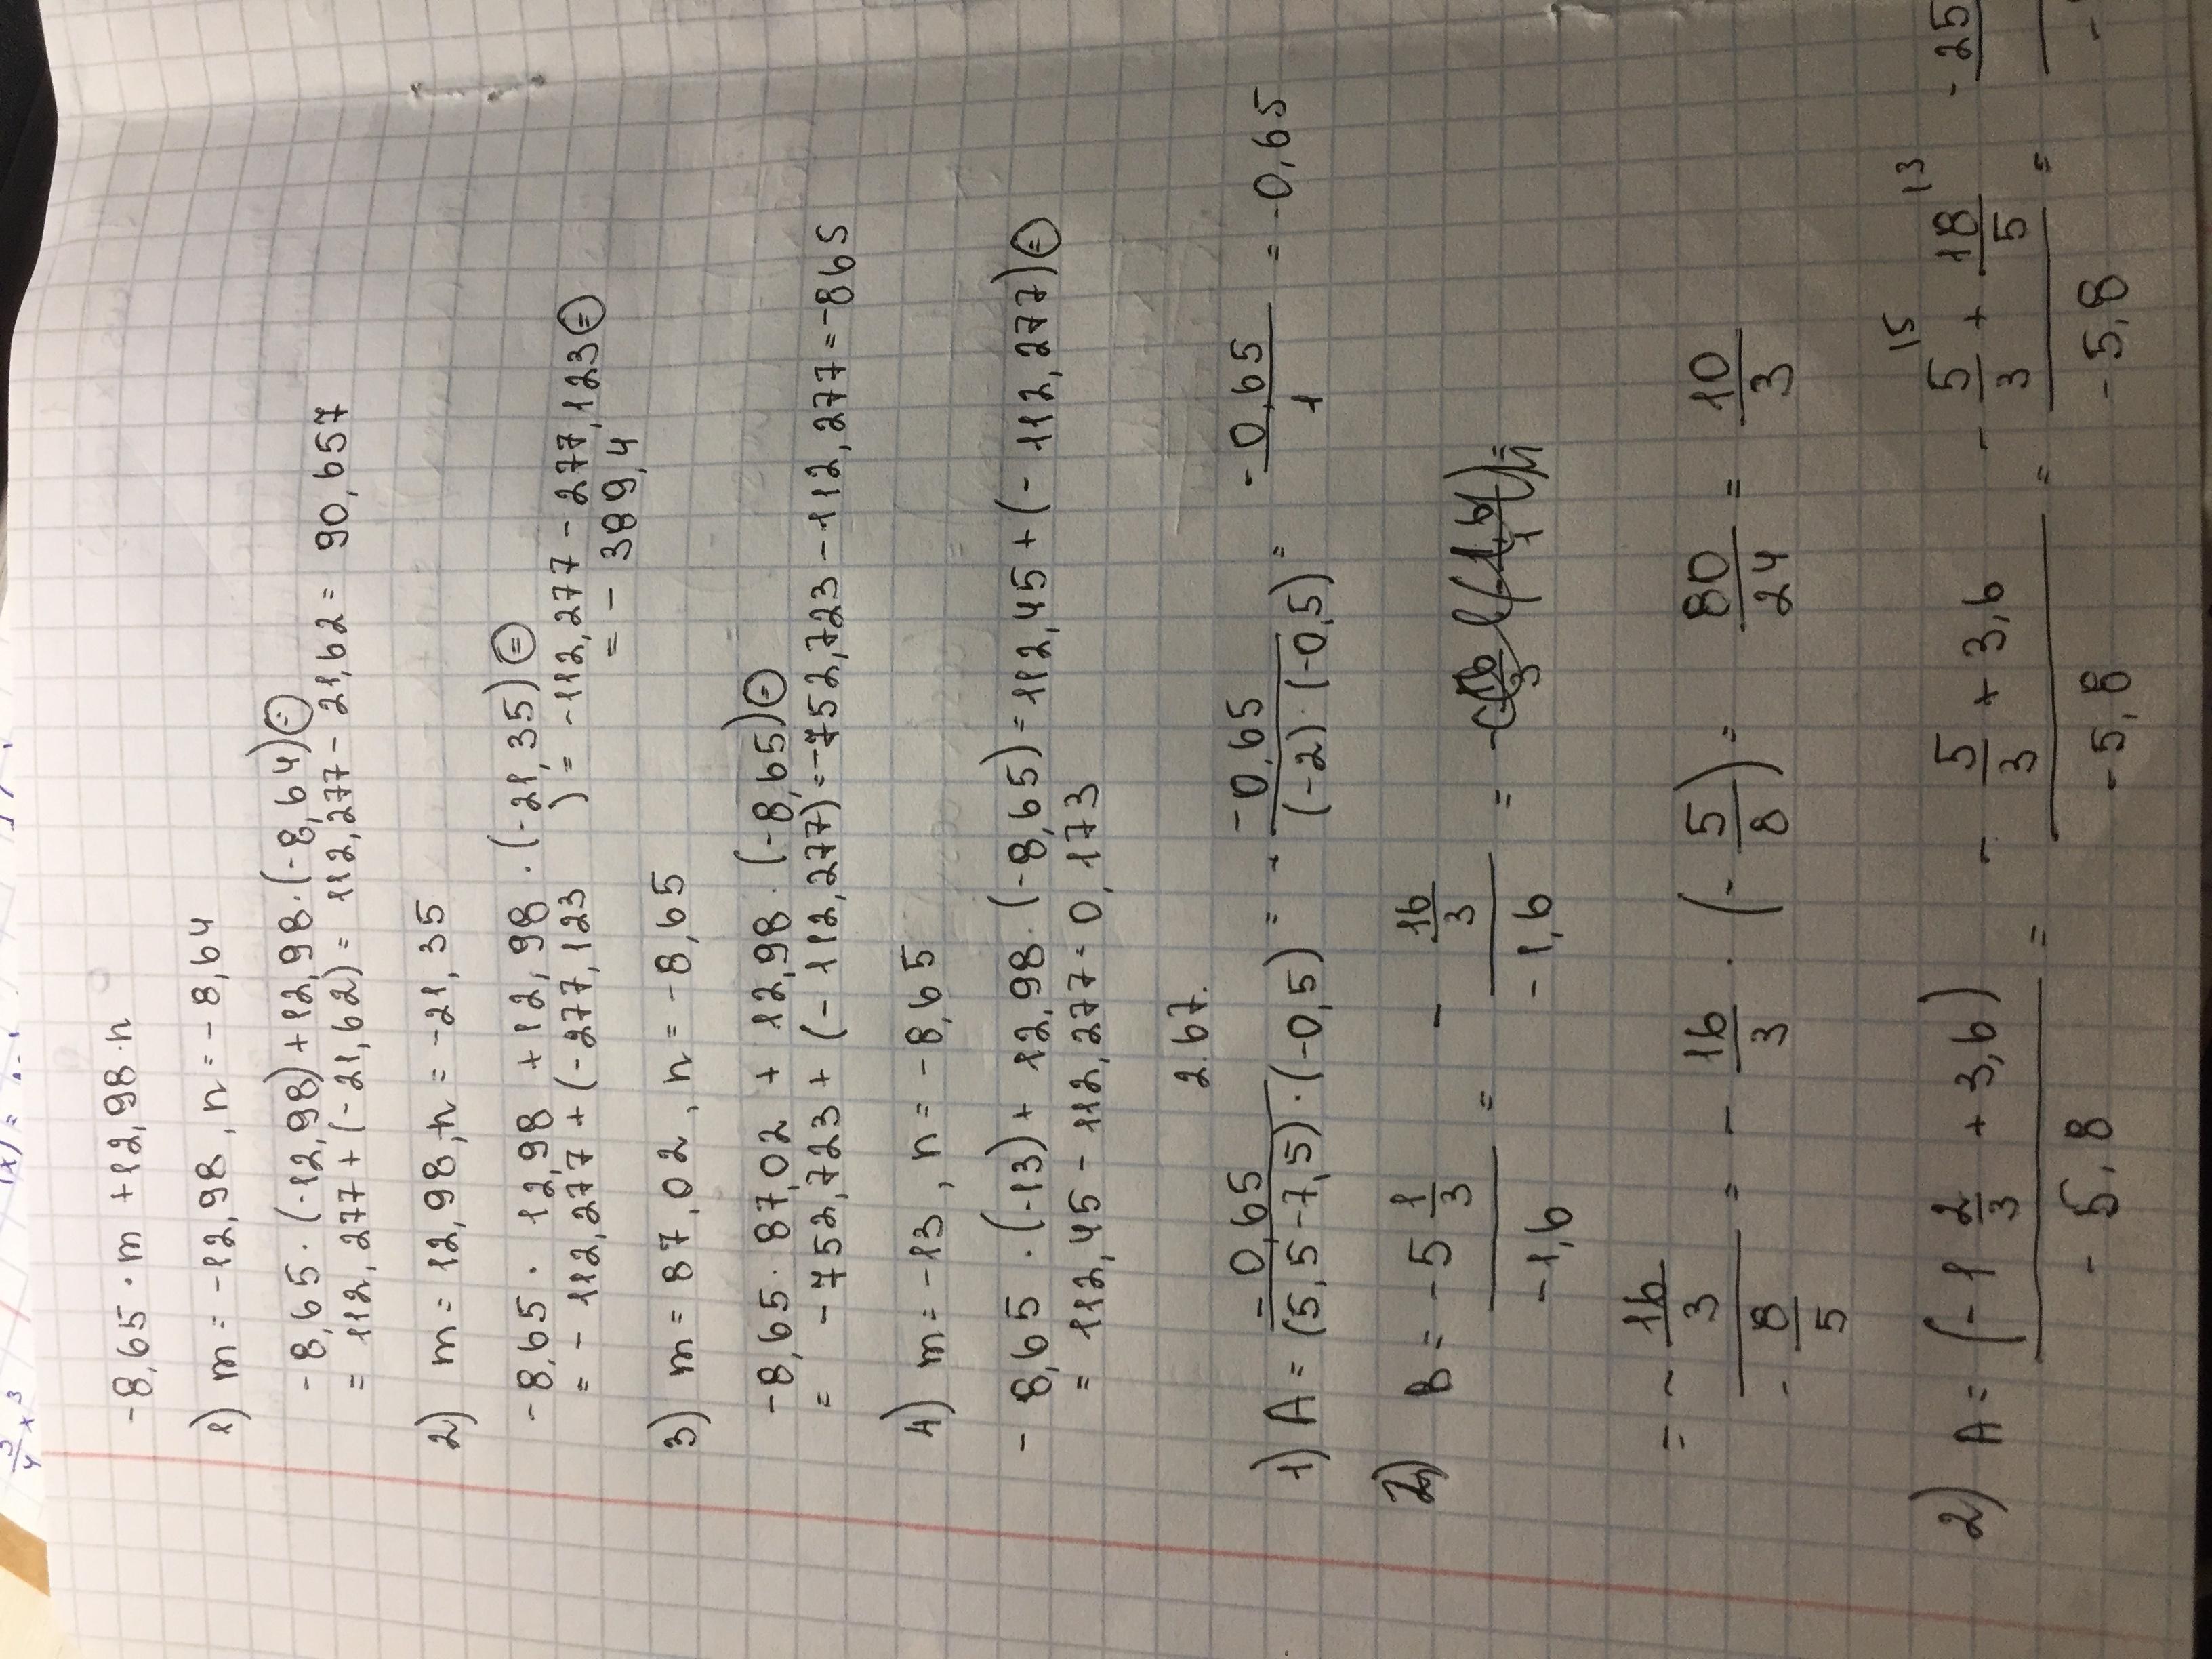 -8,65 · m + 12,98 · n
1) m = -12,98, n = -8,64
-8,65 · (-12,98) + 12,98 · (-8,64) =
= 112,277 + (-21,62) = 112,277 - 21,62 = 90,657
2) m = 12,98, n = -21,35
-8,65 · 12,98 + 12,98 · (-21,35) =
= -112,277 + (-277,123) = -112,277 - 277,123 =
= -389,4
3) m = 87,02, n = -8,65
-8,65 · 87,02 + 12,98 · (-8,65) =
= -752,723 + (-112,277) = -752,723 - 112,277 = -865
4) m = -13, n = -8,65
-8,65 · (-13) + 12,98 · (-8,65) = 112,45 + (-112,277) =
= 112,45 - 112,277 = 0,173
2.67.
1) A = -0,65 / (5,5-7,5) · (-0,5) = - -0,65 / (-2) · (-0,5) = -0,65 / 1 = -0,65
B = -5 1/3 / -1,6 = - 16/3 / -1,6 =
= - 16/3 / - 8/5 = - 16/3 · (- 5/8) = 80/24 = 10/3
2) A = (-1 2/3 + 3,6) / -5,8 = - 5/3 + 3,6 / -5,8 = - 5/3 15 + 18/5 13 / -5,8 = -25